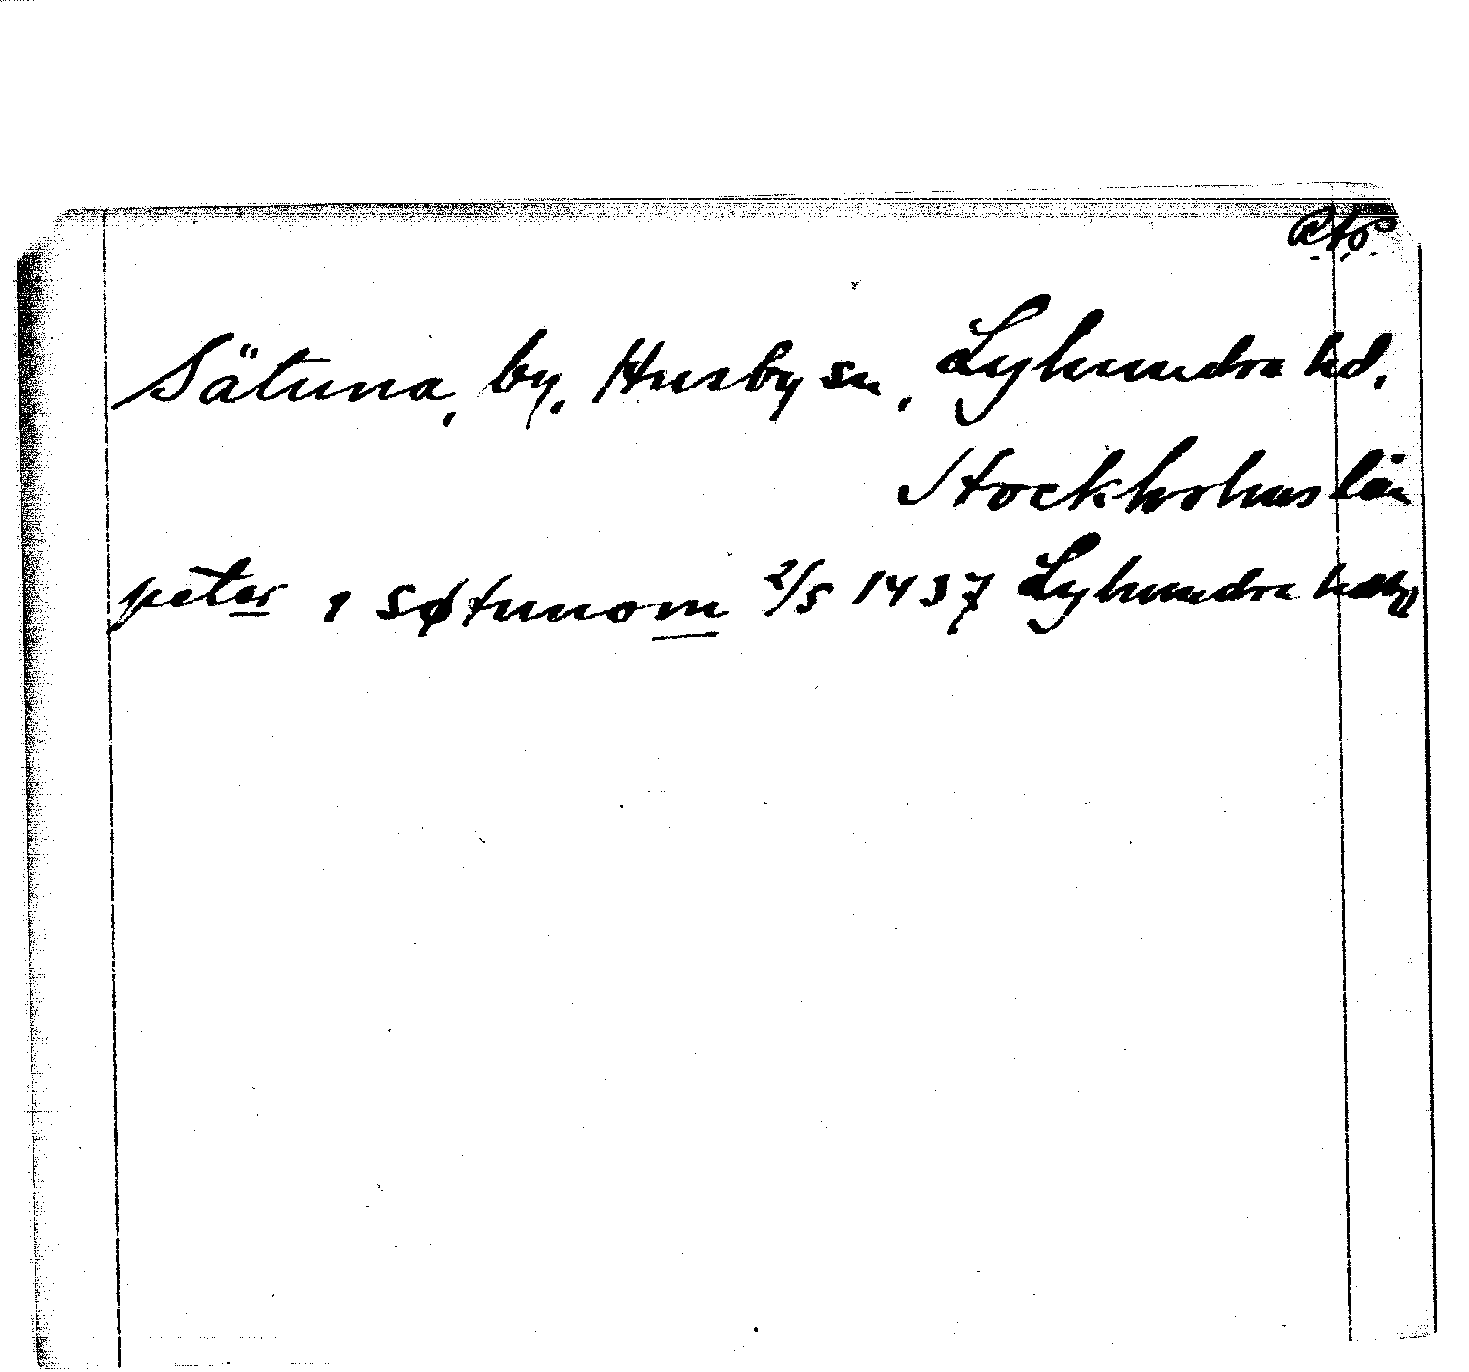 Sätuna, by, Husby sn, Lyhundra hd.
Stockholms län
peter i søtunom 2/5 1437 Lyhundra